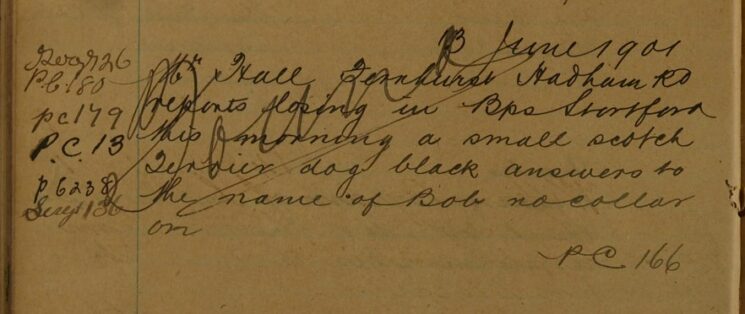 13 June 1901
Sergt 26
P.C. 80
pc 179
P.C. 13
p c 238
Sergt 136
Mr Hall Fernhurst Hadham Rd
reports losing in Bps Stortford
this morning a small scotch
Terrier dog black answers to
the name of Bob no collar
on
PC 166